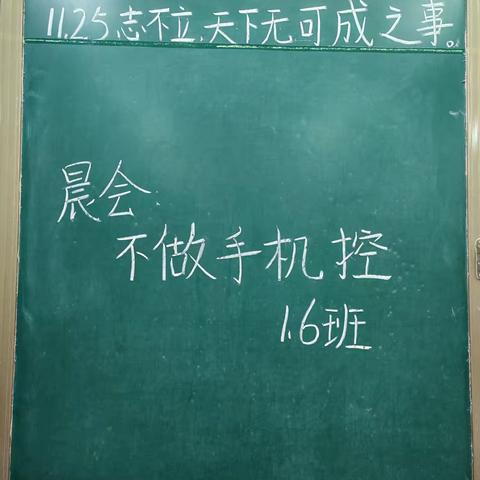 11.25志不立,天下无可成之事。
晨会:
不做手机控
1.6班